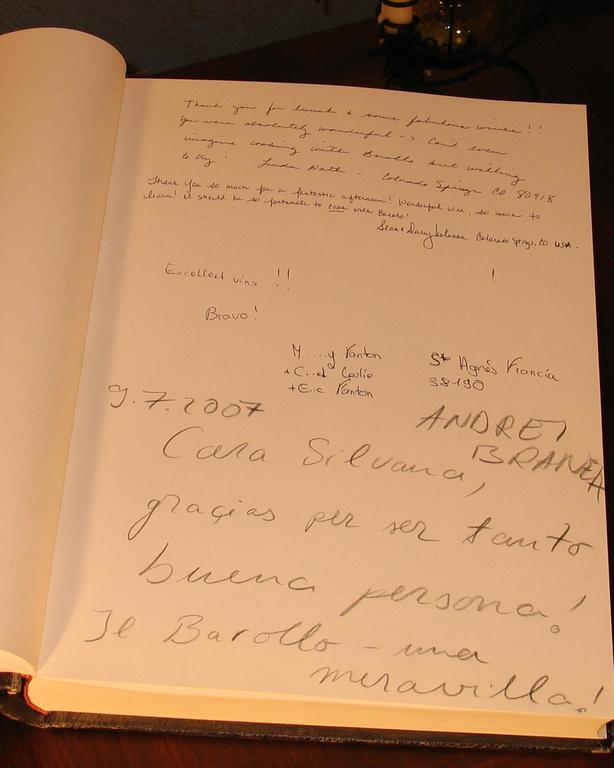 Thank you for lunch + some fabulous wines!!
You were absolutely wonderful -> Can't even
imagine cooking with Barollo but willing
to try! Linda Nath - Colorado Springs CO 80918
Thank you so much for a fantastic afternoon! Wonderful wine, so much to
learn! I should be so fortunate to cook with Barolo!
Sean + Colorado Springs, CO USA.
Excellent vins !! !
Bravo!
M.....y Vanton Ste Agnès Francia
+C...d Coslie 38190
+E..c Vanton
9.7.2007 ANDREJ
BRANEA
Cara Silvana,
graçias per ser tanto
buena persona!
Il Barollo - una
meravilla!